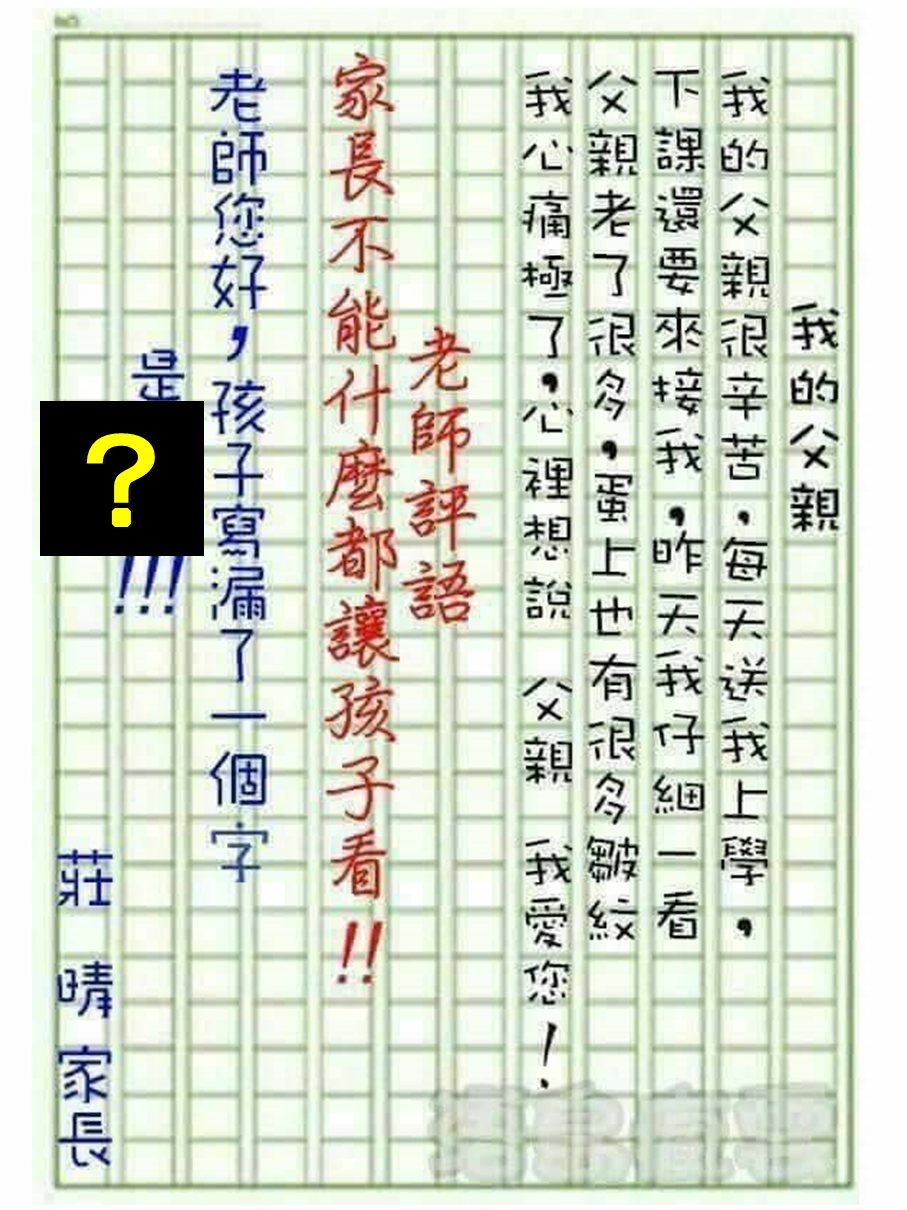 我的父親
我的父親很辛苦，每天送我上學，
下課還要來接我，昨天我仔細一看
父親老了很多，蛋上也有很多皺紋
我心痛極了，心裡想說　父親　我愛您！
老師評語
家長不能什麼都讓孩子看!!
老師您好，孩子寫漏了一個字
是
?
!!!
莊　晴　家長